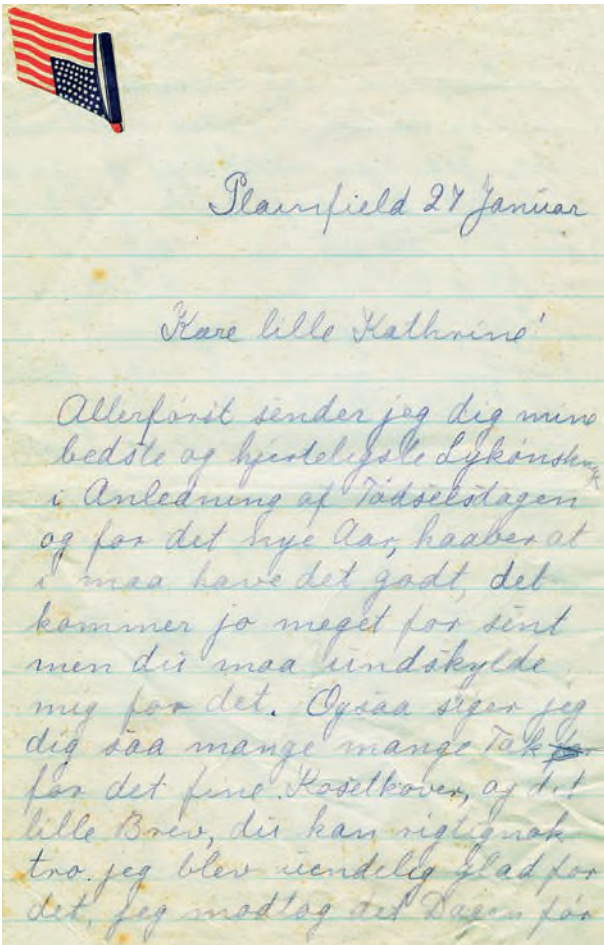 Plainfield 27 Januar
Kære lille Kathrine!
Allerførst sender jeg dig mine
bedste og hjerteligste Lykønskning
i Anledning af Fødselsdagen
og for det nye Aar, haaber at
i maa have det godt, det
kommer jo meget for sent
men du maa undskylde
mig for det. Ogsaa siger jeg
dig saa mange mange Tak
for det fine, og det
lille Brev, du kan rigtignok
tro. jeg blev uendelig glad for
det, jeg modtog det Dagen før